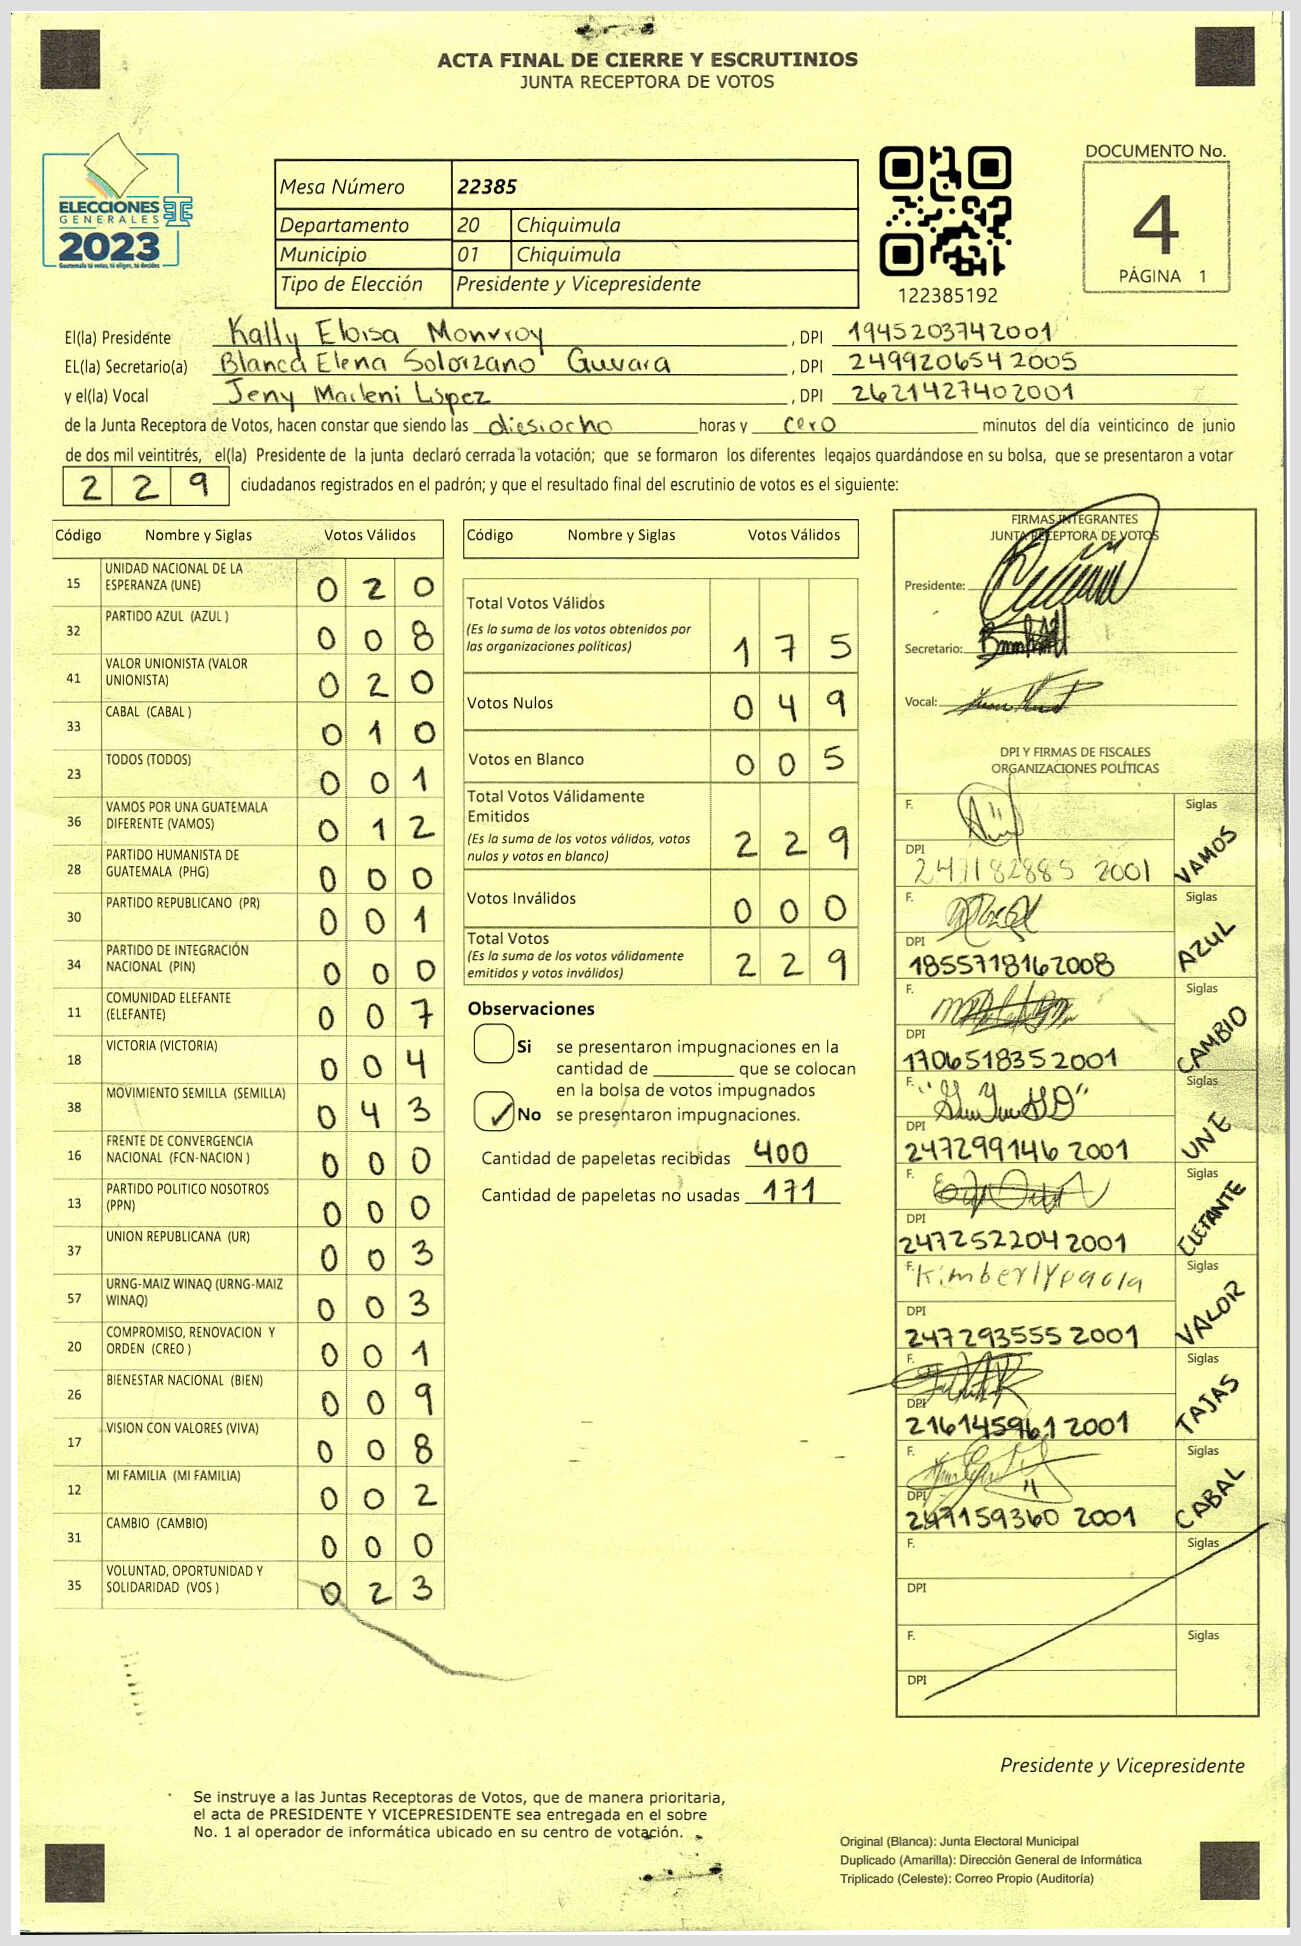 ACTA FINAL DE CIERRE Y ESCRUTINIOS
JUNTA RECEPTORA DE VOTOS
ELECCIONES
GENERALES
2023
Guatemala tú votas, tú eliges, tú decides
Mesa Número 22385
Departamento 20 Chiquimula
Municipio 01 Chiquimula
Tipo de Elección Presidente y Vicepresidente
122385192
DOCUMENTO No.
4
PÁGINA 1
El(la) Presidente Kally Eloisa Monrroy, DPI 1945203742001
EL(la) Secretario(a) Blanca Elena Solorzano Guvara, DPI 2499206542005
y el(la) Vocal Jeny Marleni López, DPI 2621427402001
de la Junta Receptora de Votos, hacen constar que siendo las diesiocho horas y cero minutos del día veinticinco de junio
de dos mil veintitrés, el(la) Presidente de la junta declaró cerrada la votación; que se formaron los diferentes legajos guardándose en su bolsa, que se presentaron a votar
2 2 9 ciudadanos registrados en el padrón; y que el resultado final del escrutinio de votos es el siguiente:
Código Nombre y Siglas Votos Válidos
15 UNIDAD NACIONAL DE LA
ESPERANZA (UNE) 0 2 0
32 PARTIDO AZUL (AZUL ) 0 0 8
41 VALOR UNIONISTA (VALOR
UNIONISTA) 0 2 0
33 CABAL (CABAL ) 0 1 0
23 TODOS (TODOS) 0 0 1
36 VAMOS POR UNA GUATEMALA
DIFERENTE (VAMOS) 0 1 2
28 PARTIDO HUMANISTA DE
GUATEMALA (PHG) 0 0 0
30 PARTIDO REPUBLICANO (PR) 0 0 1
34 PARTIDO DE INTEGRACIÓN
NACIONAL (PIN) 0 0 0
11 COMUNIDAD ELEFANTE
(ELEFANTE) 0 0 7
18 VICTORIA (VICTORIA) 0 0 4
38 MOVIMIENTO SEMILLA (SEMILLA) 0 4 3
16 FRENTE DE CONVERGENCIA
NACIONAL (FCN-NACION ) 0 0 0
13 PARTIDO POLITICO NOSOTROS
(PPN) 0 0 0
37 UNION REPUBLICANA (UR) 0 0 3
57 URNG-MAIZ WINAQ (URNG-MAIZ
WINAQ) 0 0 3
20 COMPROMISO, RENOVACION Y
ORDEN (CREO ) 0 0 1
26 BIENESTAR NACIONAL (BIEN) 0 0 9
17 VISION CON VALORES (VIVA) 0 0 8
12 MI FAMILIA (MI FAMILIA) 0 0 2
31 CAMBIO (CAMBIO) 0 0 0
35 VOLUNTAD, OPORTUNIDAD Y
SOLIDARIDAD (VOS ) 0 2 3
Código Nombre y Siglas Votos Válidos
Total Votos Válidos
(Es la suma de los votos obtenidos por
las organizaciones políticas) 1 7 5
Votos Nulos 0 4 9
Votos en Blanco 0 0 5
Total Votos Válidamente
Emitidos
(Es la suma de los votos válidos, votos
nulos y votos en blanco) 2 2 9
Votos Inválidos 0 0 0
Total Votos
(Es la suma de los votos válidamente
emitidos y votos inválidos) 2 2 9
Observaciones
Si se presentaron impugnaciones en la
cantidad de ________ que se colocan
en la bolsa de votos impugnados
No se presentaron impugnaciones.
Cantidad de papeletas recibidas 400
Cantidad de papeletas no usadas 171
FIRMAS INTEGRANTES
JUNTA RECEPTORA DE VOTOS
Presidente:
Secretario:
Vocal:
DPI Y FIRMAS DE FISCALES
ORGANIZACIONES POLÍTICAS
F. Siglas
DPI
247182885 2001 VAMOS
F. Siglas
DPI
1855718162008 AZUL
F. Siglas
DPI
1706518352001 CAMBIO
F. Siglas
DPI
247299146 2001 UNE
F. Siglas
DPI
247252204 2001 ELEFANTE
F. Kimberlypaola Siglas
DPI
247293555 2001 VALOR
F. Siglas
DPI
216145961 2001 TAJAS
F. Siglas
DPI
247159360 2001 CABAL
F. Siglas
DPI
F. Siglas
DPI
Presidente y Vicepresidente
Se instruye a las Juntas Receptoras de Votos, que de manera prioritaria,
el acta de PRESIDENTE Y VICEPRESIDENTE sea entregada en el sobre
No. 1 al operador de informática ubicado en su centro de votación.
Original (Blanca): Junta Electoral Municipal
Duplicado (Amarilla): Dirección General de Informática
Triplicado (Celeste): Correo Propio (Auditoría)